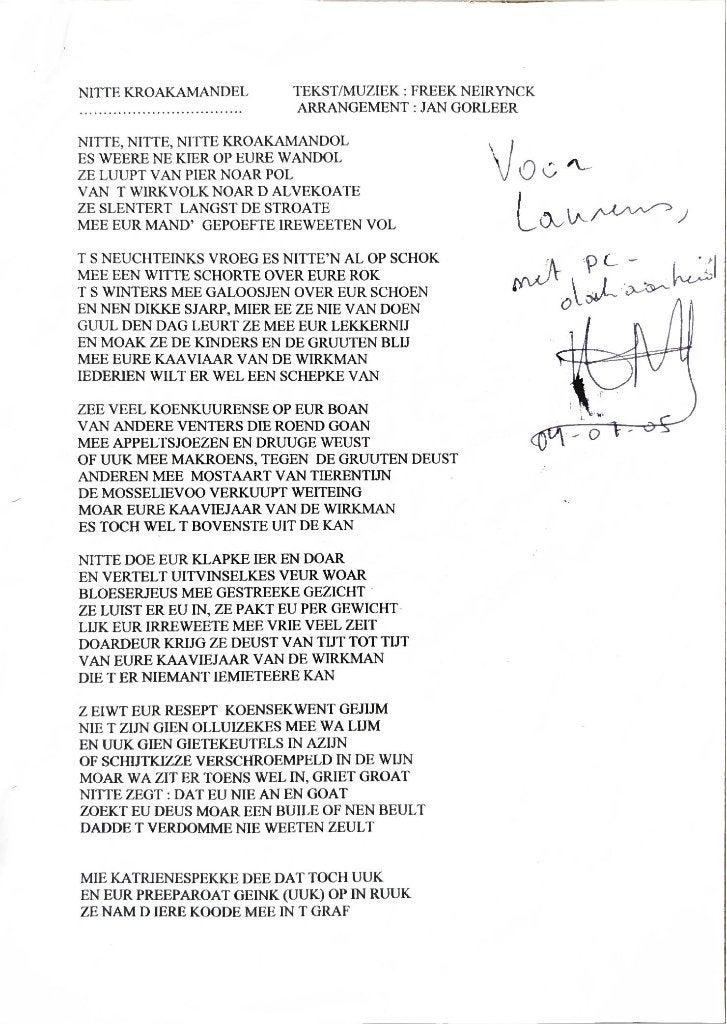 NITTE KROAKAMANDEL TEKST/MUZIEK : FREEK NEIRYNCK
................................. ARRANGEMENT : JAN GORLEER
NITTE, NITTE, NITTE KROAKAMANDOL
ES WEERE NE KIER OP EURE WANDOL
ZE LUUPT VAN PIER NOAR POL
VAN T WIRKVOLK NOAR D ALVEKOATE
ZE SLENTERT LANGST DE STROATE
MEE EUR MAND' GEPOEFTE IREWEETEN VOL
T S NEUCHTEINKS VROEG ES NITTE'N AL OP SCHOK
MEE EEN WITTE SCHORTE OVER EURE ROK
T S WINTERS MEE GALOOSJEN OVER EUR SCHOEN
EN NEN DIKKE SJARP, MIER EE ZE NIE VAN DOEN
GUUL DEN DAG LEURT ZE MEE EUR LEKKERNIJ
EN MOAK ZE DE KINDERS EN DE GRUUTEN BLIJ
MEE EURE KAAVIAAR VAN DE WIRKMAN
IEDERIEN WILT ER WEL EEN SCHEPKE VAN
ZEE VEEL KOENKUURENSE OP EUR BOAN
VAN ANDERE VENTERS DIE ROEND GOAN
MEE APPELTSJOEZEN EN DRUUGE WEUST
OF UUK MEE MAKROENS, TEGEN DE GRUUTEN DEUST
ANDEREN MEE MOSTAART VAN TIERENTIJN
DE MOSSELIEVOO VERKUUPT WEITEING
MOAR EURE KAAVIEJAAR VAN DE WIRKMAN
ES TOCH WEL T BOVENSTE UIT DE KAN
NITTE DOE EUR KLAPKE IER EN DOAR
EN VERTELT UITVINSELKES VEUR WOAR
BLOESERJEUS MEE GESTREEKE GEZICHT
ZE LUIST ER EU IN, ZE PAKT EU PER GEWICHT
LIJK EUR IRREWEETE MEE VRIE VEEL ZEIT
DOARDEUR KRIJG ZE DEUST VAN TIJT TOT TIJT
VAN EURE KAAVIEJAAR VAN DE WIRKMAN
DIE T ER NIEMANT IEMIETEERE KAN
Z EIWT EUR RESEPT KOENSEKWENT GEJIJM
NIE T ZIJN GIEN OLLUIZEKES MEE WA LIJM
EN UUK GIEN GIETEKEUTELS IN AZIJN
OF SCHIJTKIZZE VERSCHROEMPELD IN DE WIJN
MOAR WA ZIT ER TOENS WEL IN, GRIET GROAT
NITTE ZEGT : DAT EU NIE AN EN GOAT
ZOEKT EU DEUS MOAR EEN BUILE OF NEN BEULT
DADDE T VERDOMME NIE WEETEN ZEULT
MIE KATRIENESPEKKE DEE DAT TOCH UUK
EN EUR PREEPAROAT GEINK (UUK) OP IN RUUK
ZE NAM D IERE KOODE MEE IN T GRAF
Voor
Laurens,
met PC-
dankbaarheid
04-07-05